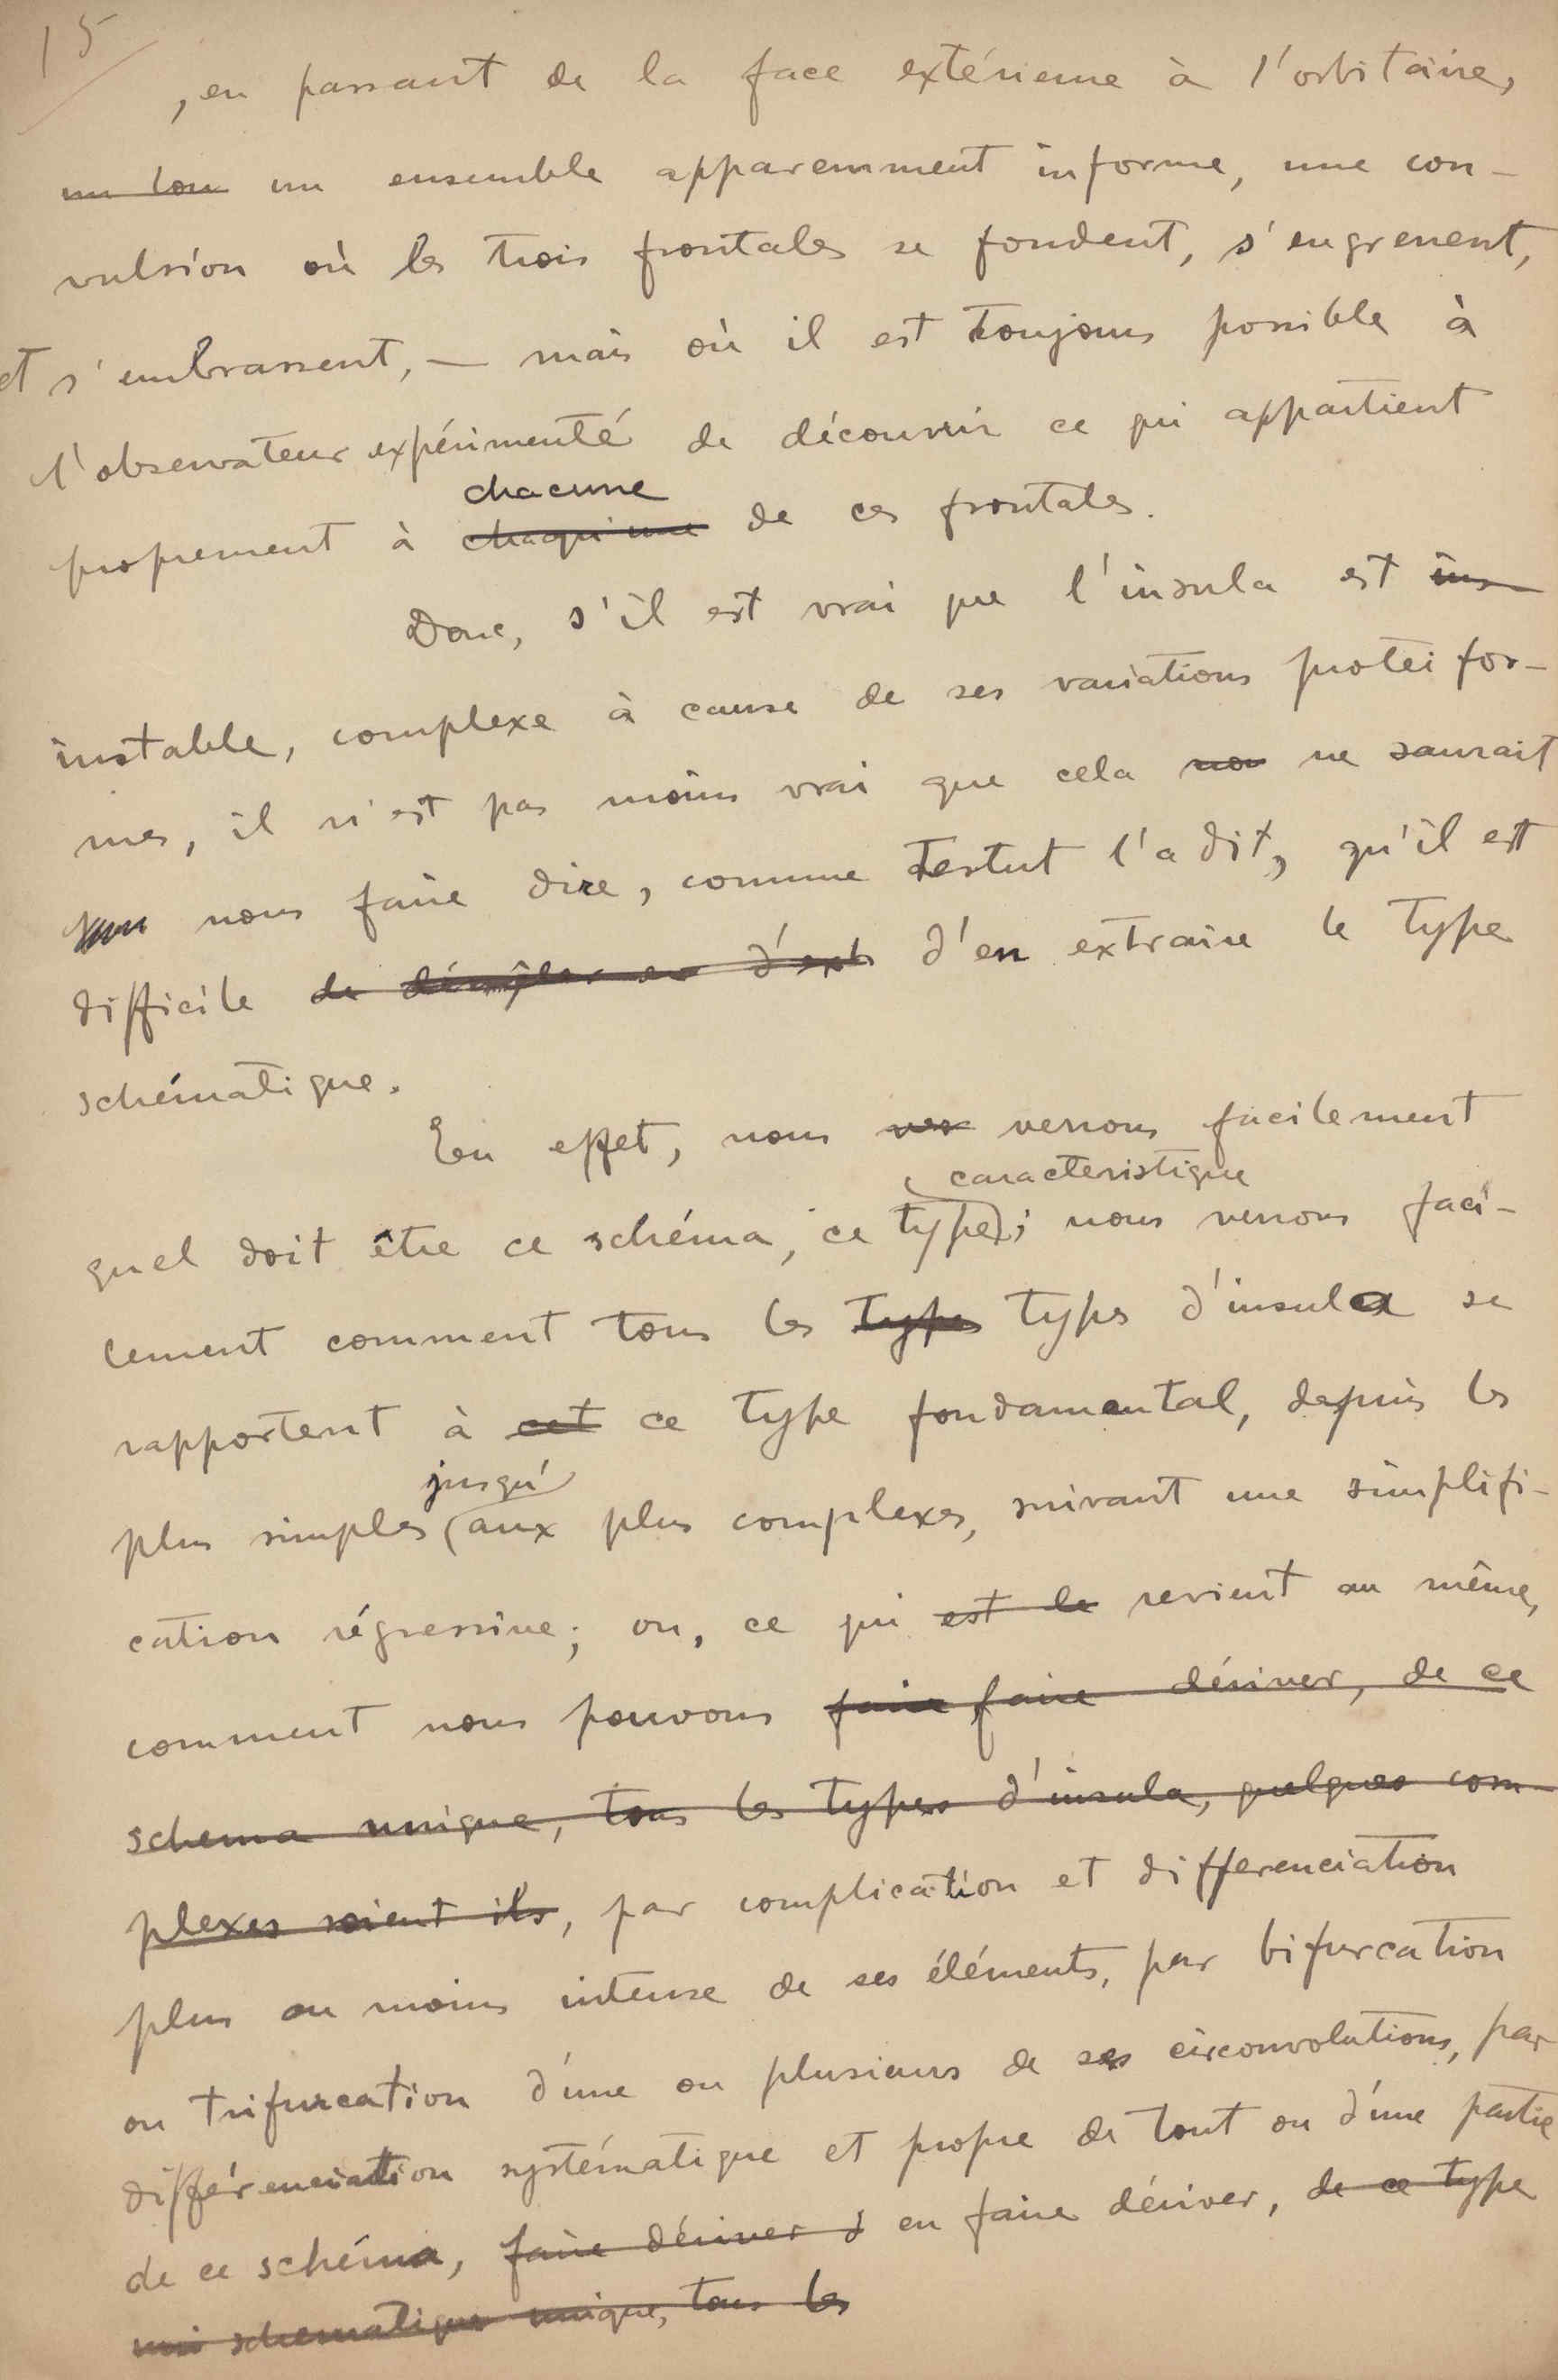 15
, en passant de la face extérieure à l'orbitaire,
un con un ensemble apparemment informe, une con-
vulsion où les trois frontales se fondent, s'engrenent,
et s'embrassent, — mais où il est toujours possible à
l'observateur expérimenté de découvrir ce qui appartient
chacune
proprement à chaqu'une de ces frontales.
Donc, s'il est vrai que l'insula est ins
instable, complexe à cause de ses variations protéifor-
mes, il n'est pas moins vrai que cela ne saurait
nous faire dire, comme Testut l'a dit, qu'il est
difficile de démêler en d'ext d'en extraire le type
schématique.
En effet, nous ver verrons facilement
caracteristique
quel doit être ce schéma, ce type; nous verrons faci-
lement comment tous les types types d'insula se
rapportent à cet ce type fondamental, depuis les
jusqu'
plus simples aux plus complexes, suivant une simplifi-
cation régressive; ou, ce qui est le revient au même,
comment nous pouvons faire faire dériver, de ce
schema unique, tous les types d'insula, quelques com-
plexes soient ils, par complication et differenciation
plus ou moins intense de ses éléments, par bifurcation
ou trifurcation d'une ou plusieurs de ses circonvolutions, par
différenciation systématique et propre de tout ou d'une partie
de ce schéma, faire dériver d en faire dériver, de ce type
schematique unique, tous les